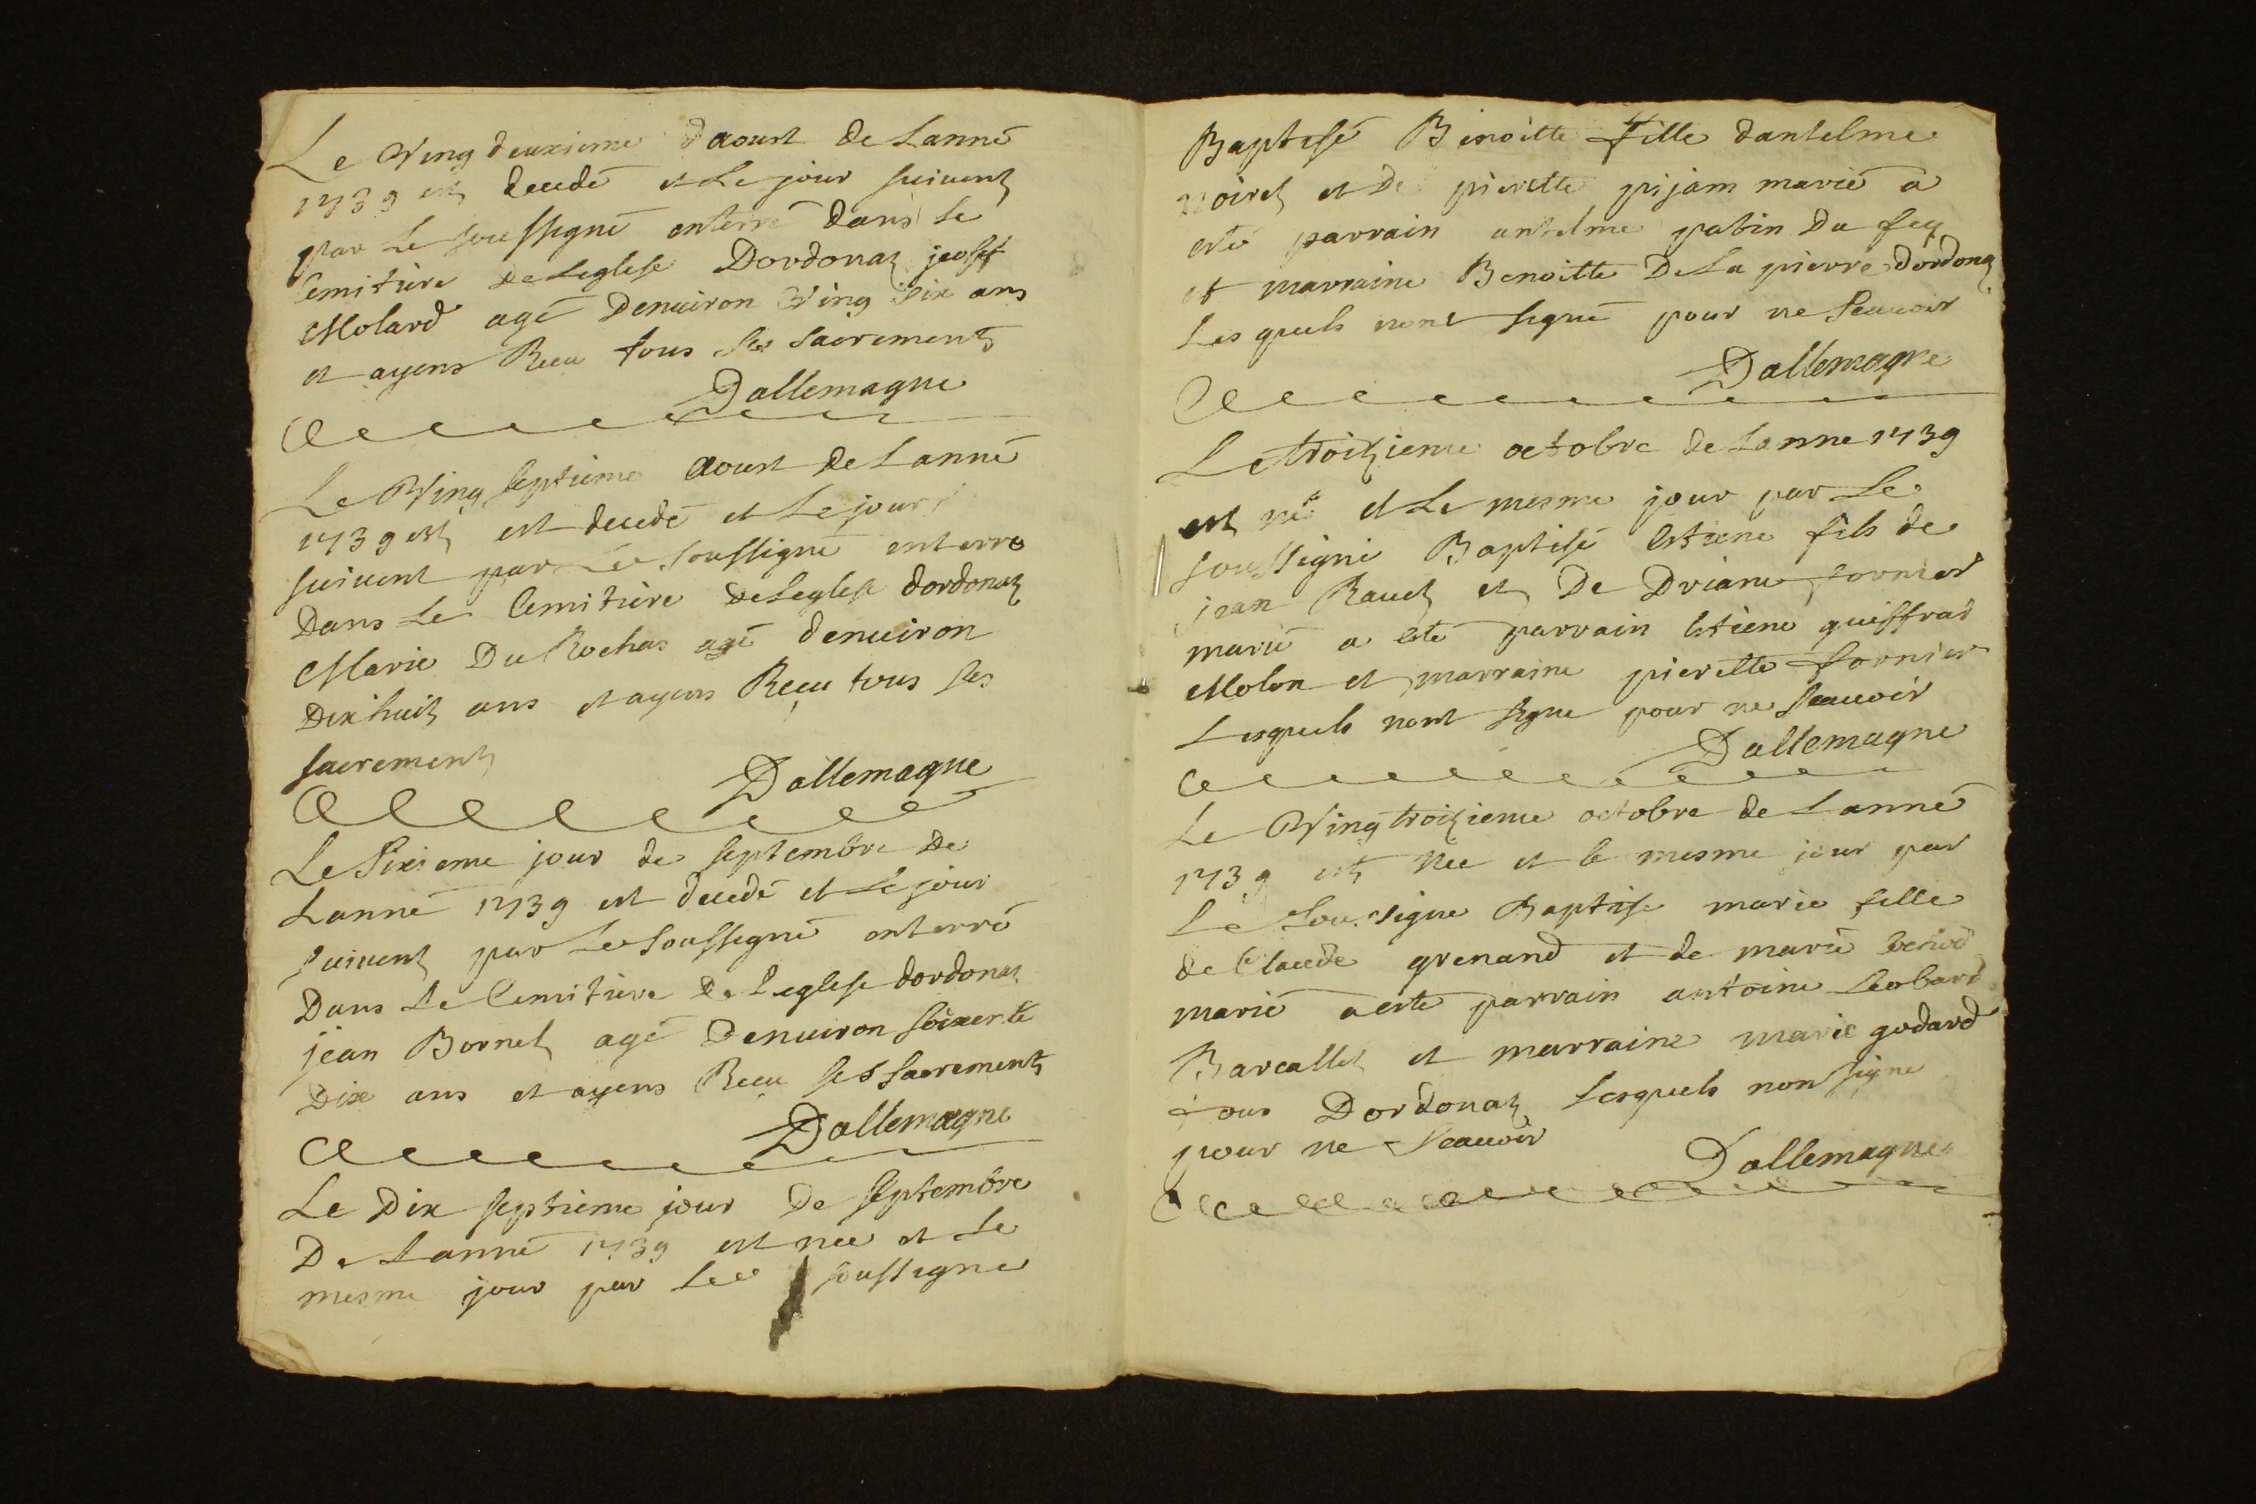 Le Ving deuxieme daoust de Lanné
1739 est decedé et Le jour suivent
par Le soussigné enterré dans Le
Cemitiere de Leglese Dordonaz
Molard agé Denuiron Ving six ans
et ayens Recu tous ses sacrements
Dallemagne
Le Ving septieme aoust de Lanné
1739 est est decedé et Le jour
suivent par Le soussigné enterre
Dans Le Cemitiere de Leglese dordonaz
Marie Du Rochas agé denuiron
Dix huit ans et ayens Reçu tous ses
sacrements
Dallemagne
Le Sixieme jour de septembre de
Lanné 1739 est decedé et Le jour
suivent par Le soussigné enterré
Dans Le Cemitiere De Leglese dordonaz
jean Bornet agé Denuiron soixente
Dix ans et ayens Recu ses sacrements
Dallemagne
Le Dix septieme jour De septembre
De Lanné 1739 est nee et Le
mesme jour par Lee soussigne
Baptisé Benoitte fille dantelme
noiret et De pierette pijam marié a
esté parrain antelme pabin Du
et marraine Benoitte De La pierre dordonaz
Les quels nont signé pour ne Scauoir
Dallemagne
Le troizieme octobre de Lanne 1739
est né et Le mesme jour par Le
soussigné Baptisé Estiene fils de
jean Rauet et De Driane fornier
marié a esté parrain Estiene guiffrai
Molon et marraine pierette fornier
Lesquels nont signe pour ne Scauoir
Dallemagne
Le Ving troizieme octobre de Lanné
1739 est Nee et le mesme jour par
Le Soussigne Baptise marie fille
de Claude grenand et de marie
marié a esté parrain antoine Leobard
Barcallet et marraine marie godard
tous Dordonaz Lesquels non signe
pour ne Scauoir
Dallemagne